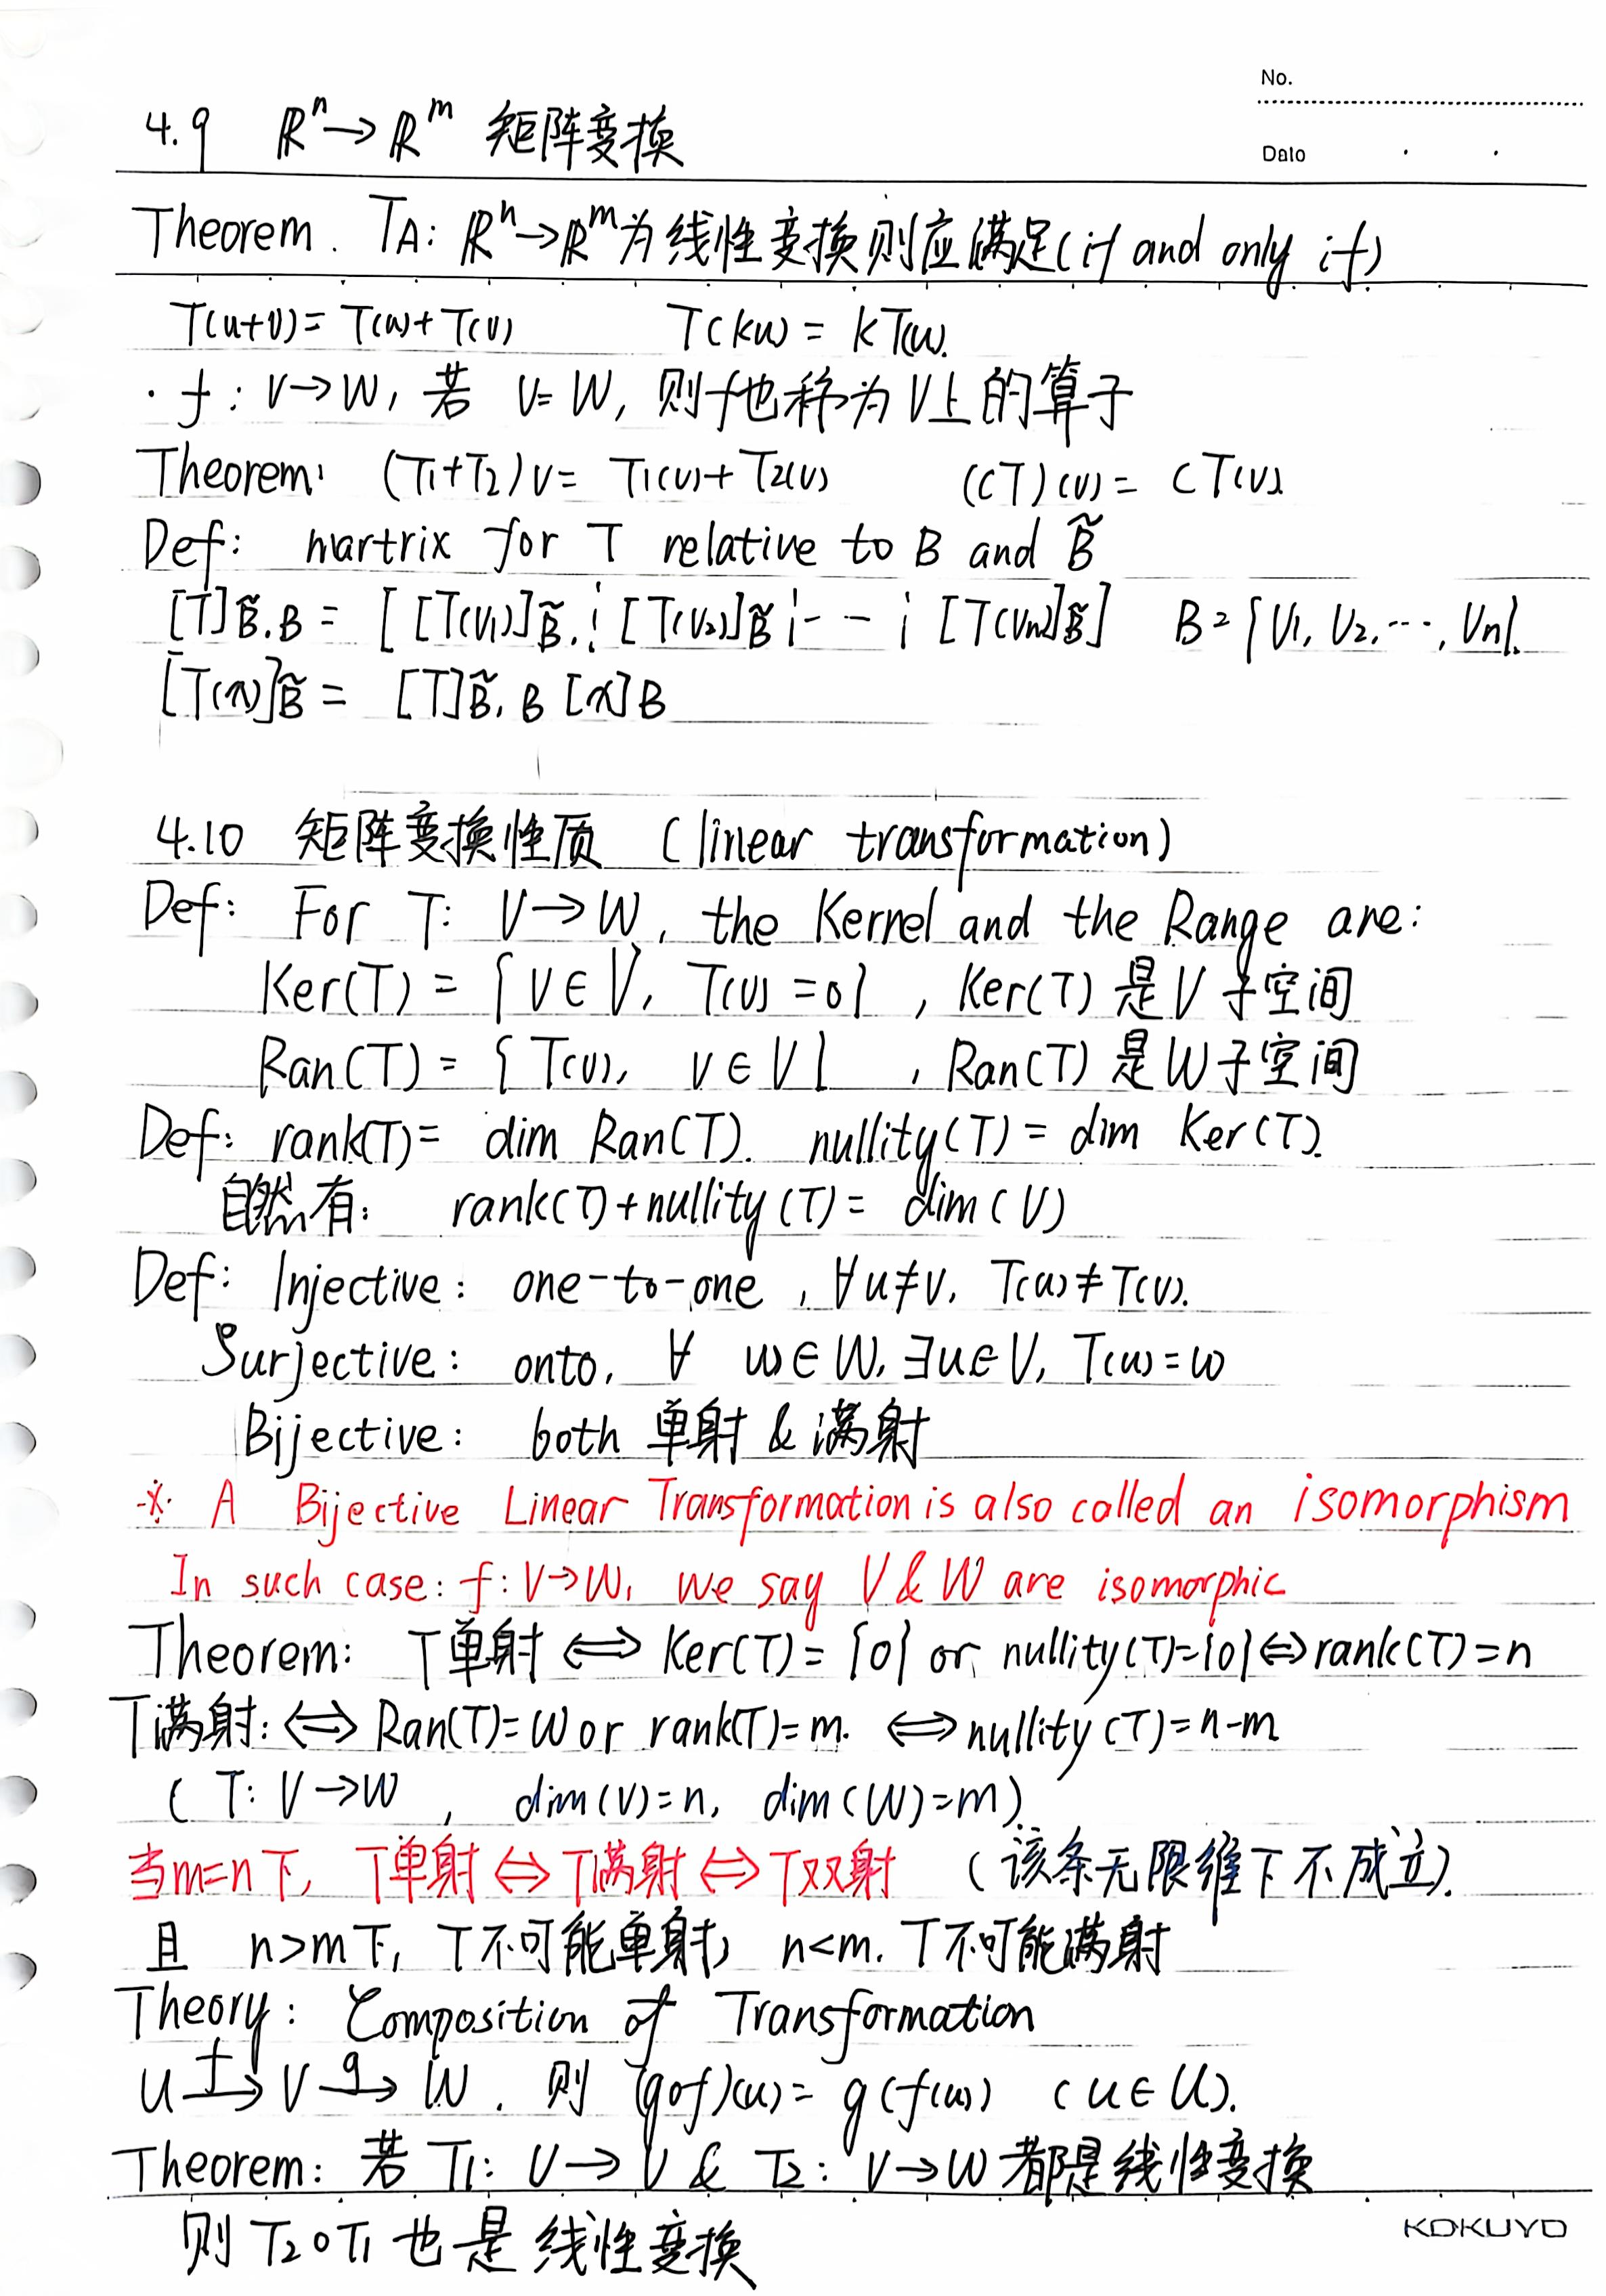 No.
4.9 ℝⁿ→ℝᵐ 矩阵变换
Date . .
Theorem. TA: ℝⁿ→ℝᵐ为线性变换则应满足(if and only if)
T(u+v)= T(u)+T(v) T(ku) = kT(u).
· f: V→W, 若 V=W, 则f也称为V上的算子
Theorem: (T1+T2)v= T1(v)+T2(v) (cT)(v)= cT(v)
Def: martrix for T relative to B and B̃
[T]B̃,B = [ [T(v1)]B̃ ¦ [T(v2)]B̃ ¦-- ¦ [T(vn)]B̃] B={v1, v2, ···, vn}.
[T(x)]B̃ = [T]B̃,B [x]B
4.10 矩阵变换性质 (linear transformation)
Def: For T: V→W, the Kernel and the Range are:
Ker(T) = {v∈V, T(v)=0} , Ker(T) 是V子空间
Ran(T) = {T(v), v∈V} , Ran(T) 是W子空间
Def: rank(T)= dim Ran(T). nullity(T)= dim Ker(T).
自然有: rank(T)+nullity(T)= dim(V)
Def: Injective: one-to-one, ∀u≠v, T(u)≠T(v).
Surjective: onto, ∀ w∈W, ∃u∈V, T(u)=w
Bijective: both 单射 & 满射
※ A Bijective Linear Transformation is also called an isomorphism
In such case: f: V→W, we say V & W are isomorphic
Theorem: T单射 ⇔ Ker(T)= {0} or nullity(T)={0}⇔rank(T)=n
T满射: ⇔ Ran(T)=W or rank(T)=m. ⇔nullity(T)=n-m
( T: V→W , dim(V)=n, dim(W)=m)
当m=n下, T单射⇔T满射⇔T双射 (该条无限维下不成立).
且 n>m下, T不可能单射, n<m. T不可能满射
Theory: Composition of Transformation
U f→ V g→ W. 则 (g∘f)(u)= g(f(u)) (u∈U).
Theorem: 若 T1: U→V & T2: V→W都是线性变换
则 T2∘T1 也是线性变换
KOKUYO